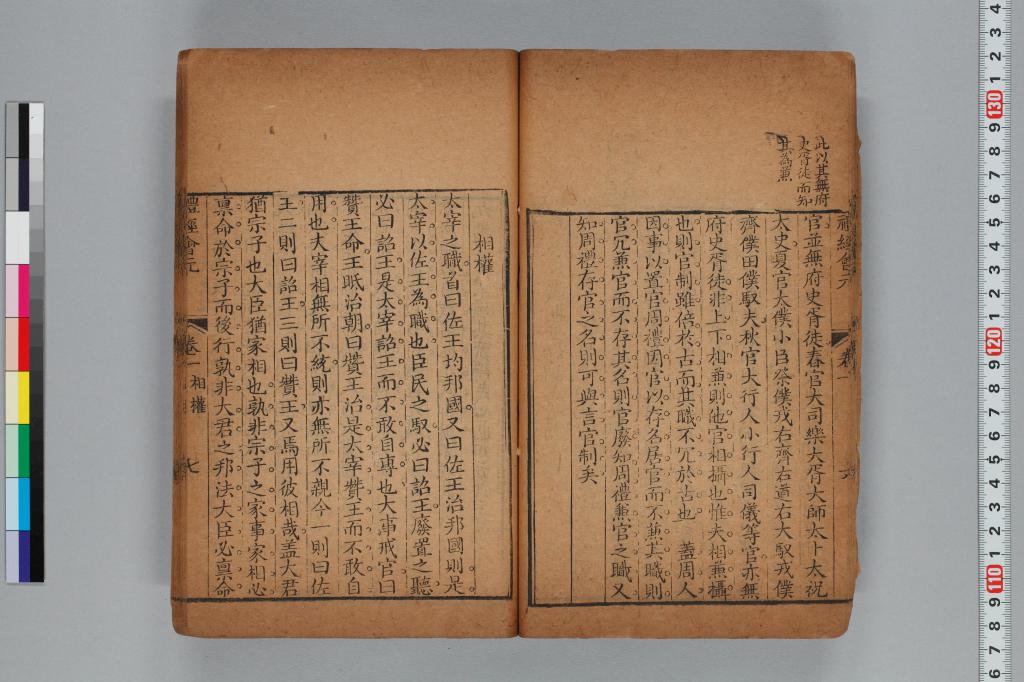 此以其無府
史胥徒而知
其為兼
禮經會元
卷一
官並無府史胥徒春官大司樂大胥大師太卜太祝
大史夏官太僕小臣祭僕戎右齊右道右大馭戎僕
齊僕田僕馭夫秋官大行人小行人司儀等官亦無
府史胥徒非上下相兼則他官相攝也惟夫相兼攝
也則官制雖倍於古而其職不冗於古也 蓋周人
因事以置官周禮因官以存名居官而不兼其職則
官冗兼官而不存其名則官廢知周禮兼官之職又
知周禮存官之名則可與言官制矣
相權
太宰之職首曰佐王均邦國又曰佐王治邦國則是
太宰以佐王為職也臣民之馭必曰詔王廢置之聽
必曰詔王是太宰詔王而不敢自專也大事戒官曰
贊王命王眂治朝曰贊王治是太宰贊王而不敢自
用也夫宰相無所不統則亦無所不親今一則曰佐
王二則曰詔王三則曰贊王又焉用彼相哉蓋大君
猶宗子也大臣猶家相也孰非宗子之家事家相必
稟命於宗子而後行孰非大君之邦法大臣必稟命
禮經會元
卷一 相權 七